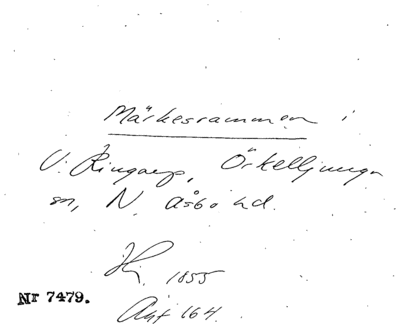 Märkesrammen i
V. Ringarp, Örkelljunga
sn, N. Åsbo hd.
1855
Nr 7479.
Akt 164.